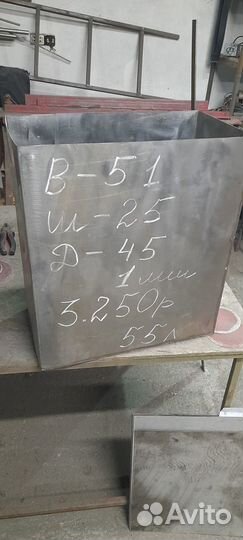 В-51
Ш-25
Д-45
1 мм
3.250р
55л
Avito